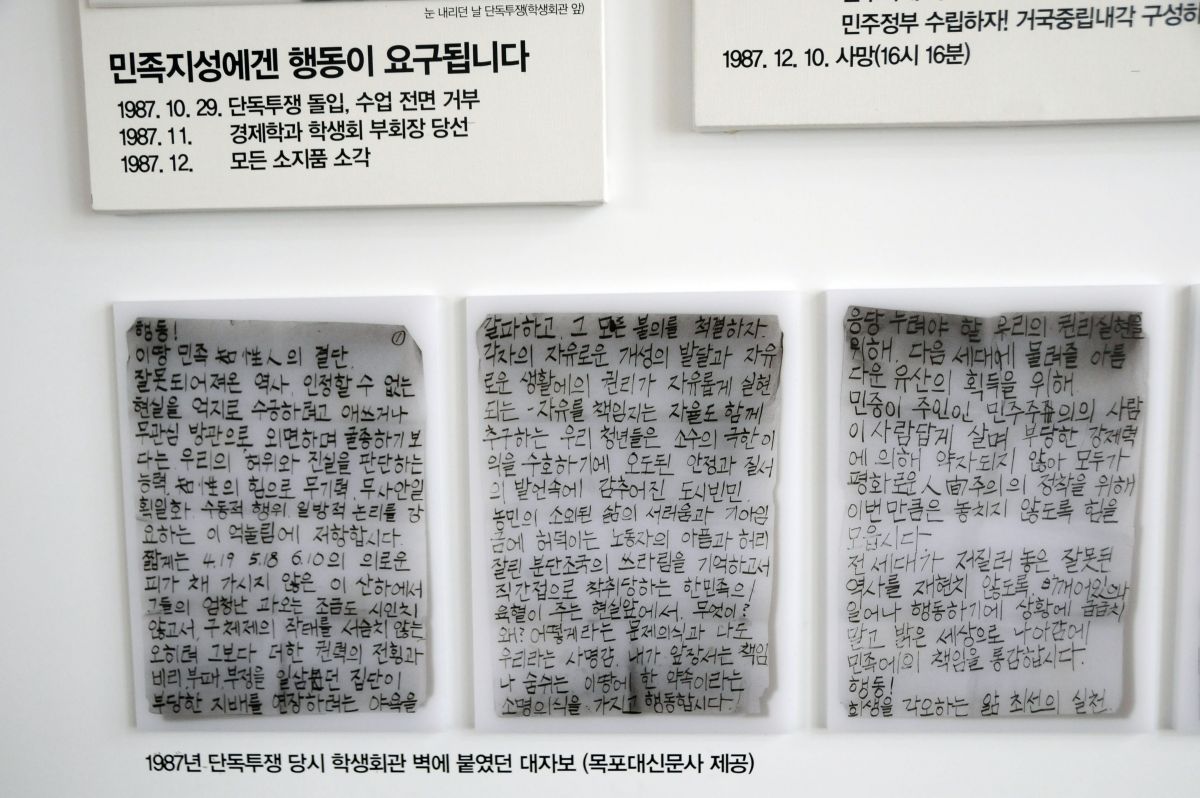 눈 내리던 날 단독투쟁(학생회관 앞)
민족지성에겐 행동이 요구됩니다
1987. 10. 29. 단독투쟁 돌입, 수업 전면 거부
1987. 11. 경제학과 학생회 부회장 당선
1987. 12. 모든 소지품 소각
민주정부 수립하자! 거국중립내각 구성하
1987. 12. 10. 사망(16시 16분)
행동! ①
이땅 민족 知性人의 결단.
잘못되어져온 역사, 인정할 수 없는
현실을 억지로 수긍하려고 애쓰거나
무관심 방관으로, 외면하며 굴종하기 보
다는 우리의 허위와 진실을 판단하는
능력, 知性의 힘으로 무기력, 무사안일
획일화, 수동적 행위, 일방적 논리를 강
요하는 이 억눌림에 저항합시다.
짧게는 4.19 5.18 6.10의 의로운
피가 채 가시지 않은 이 산하에서
그들의 엄청난 과오는 조금도 시인치
않고서, 구체제의 작태를 서슴치 않는
오히려 그보다 더한 권력의 전횡과
비리, 부패, 부정을 일삼았던 집단이
부당한 지배를 연장하려는 야욕을
갈파하고, 그 모든 불의를 척결하자.
각자의 자유로운 개성의 발달과 자유
로운 생활에의 권리가 자유롭게 실현
되는 - 자유를 책임지는 자율도 함께
추구하는 우리 청년들은 소수의 극한 이
익을 수호하기에 오도된 안정과 질서
의 발언속에 감추어진 도시빈민,
농민의 소외된 삶의 서러움과 기아임
금에 허덕이는 노동자의 아픔과 허리
잘린 분단조국의 쓰라림을 기억하고서
직간접으로 착취당하는 한민족의
육혈이 주는 현실앞에서, 무엇이?
왜? 어떻게라는 문제의식과 나도
우리라는 사명감, 내가 앞장서는 책임
나 숨쉬는 이땅에 한 약속이라는
소명의식을 가지고 행동합시다.
응당 누려야 할 우리의 권리실현을
위해, 다음 세대에 물려줄 아름
다운 유산의 획득을 위해,
민중이 주인인 민주주의의 사람
이 사람답게 살며 부당한 강제력
에 의해 약자되지 않아 모두가
평화로운 人間주의의 정착을 위해
이번 만큼은 놓치지 않도록 힘을
모읍시다-
전 세대가 저질러 놓은 잘못된
역사를 재현치 않도록,
일어나 행동하기에 상황에 급급치
말고 밝은 세상으로 나아감에
민족에의 책임을 통감합시다.
행동!
희생을 각오하는 삶 최선의 실천.
1987년 단독투쟁 당시 학생회관 벽에 붙였던 대자보 (목포대신문사 제공)